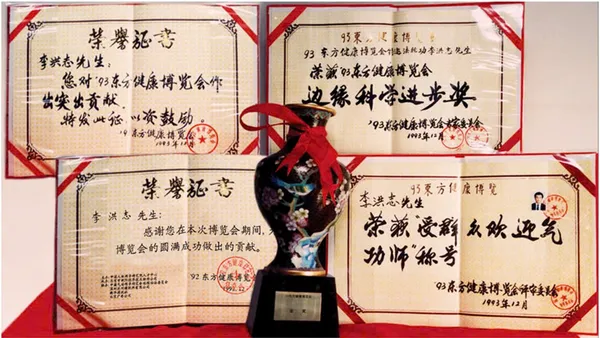 荣誉证书
李洪志先生:
您对'93东方健康博览会作
出突出贡献.
特发此证,以资鼓励。
'93东方健康博览会
1993年12月
'93東方健康博览会
李洪志先生
荣获'93东方健康博览会
边缘科学进步奖
'93东方健康博览会评审委员会
1993年12月
荣誉证书
李洪志 先生:
感谢您在本次博览会期间,为
博览会的圆满成功做出的贡献。
'92东方健康博览
'93東方健康博览
李洪志先生
荣获"受群众欢迎气
功师"称号
'93东方健康博览会评审委员会
1993年12月